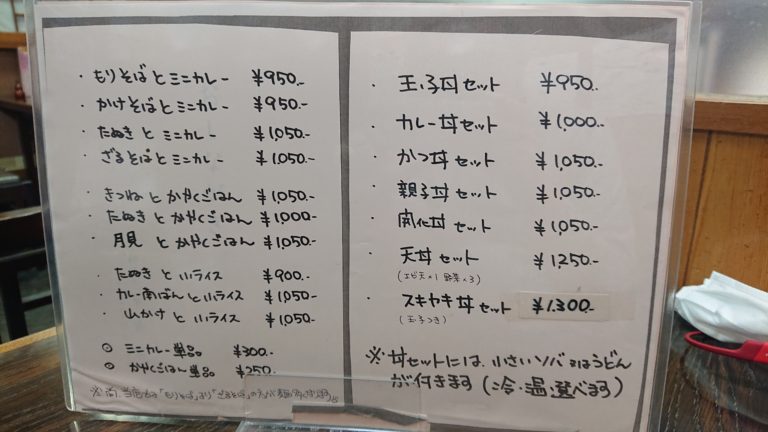 ・もりそばとミニカレー ¥950.-
・かけそばとミニカレー ¥950.-
・たぬきとミニカレー ¥1,050.-
・ざるそばとミニカレー ¥1,050.-
・きつねとかやくごはん ¥1,050.-
・たぬきとかやくごはん ¥1,000-
・月見とかやくごはん ¥1,050.-
・たぬきと小ライス ¥900.-
・カレー南ばんと小ライス ¥1,050-
・山かけと小ライス ¥1,050.-
○ ミニカレー単品 ¥300.-
○ かやくごはん単品 ¥250.-
※尚、当店では「もりそば」より「ざるそば」の方が麺
・玉子丼セット ¥950.-
・カレー丼セット ¥1,000.-
・かつ丼セット ¥1,050.-
・親子丼セット ¥1,050.-
・開化丼セット ¥1,050.-
・天丼セット ¥1,250.-
(エビ天×1 野菜×3)
・スキヤキ丼セット ¥1,300.-
(玉子つき)
※丼セットには、小さいソバ又はうどん
が付きます(冷・温選べます)